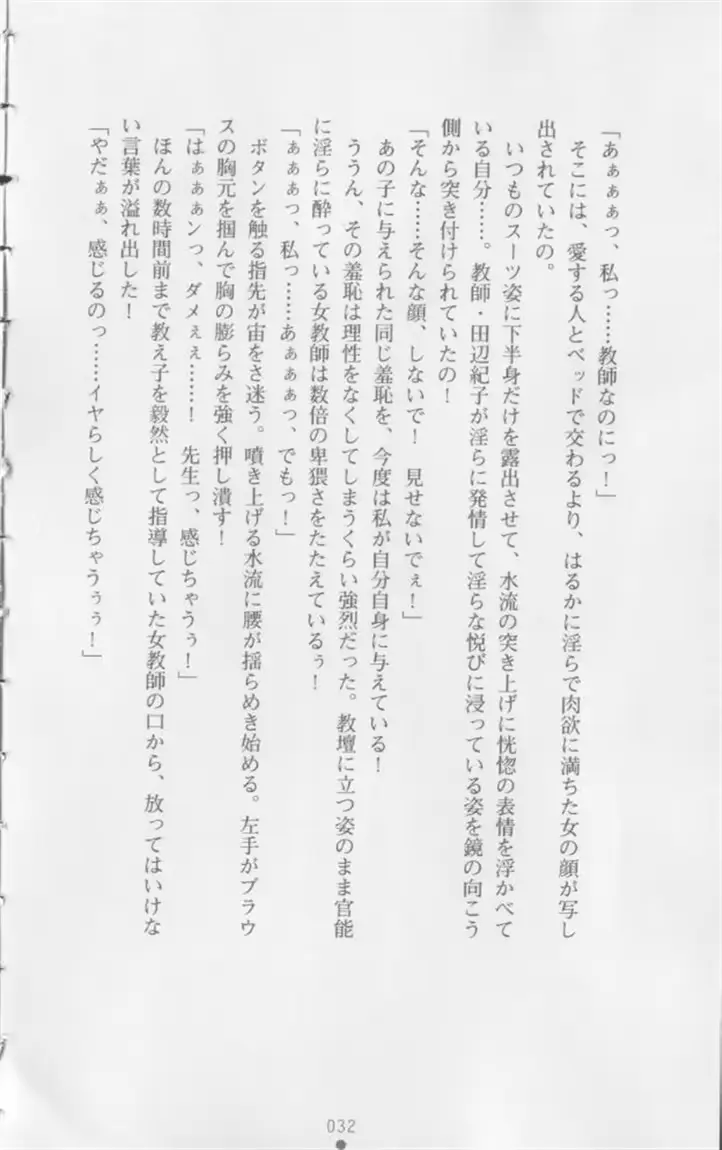 「あぁぁぁっ、私っ……教師なのにっ！」
そこには、愛する人とベッドで交わるより、はるかに淫らで肉欲に満ちた女の顔が写し
出されていたの。
いつものスーツ姿に下半身だけを露出させて、水流の突き上げに恍惚の表情を浮かべて
いる自分……。教師・田辺紀子が淫らに発情して淫らな悦びに浸っている姿を鏡の向こう
側から突き付けられていたの！
「そんな……そんな顔、しないで！　見せないでぇ！」
あの子に与えられた同じ羞恥を、今度は私が自分自身に与えている！
ううん、その羞恥は理性をなくしてしまうくらい強烈だった。教壇に立つ姿のまま官能
に淫らに酔っている女教師は数倍の卑猥さをたたえているぅ！
「ぁぁぁっ、私っ……あぁぁぁっ、でもっ！」
ボタンを触る指先が宙をさ迷う。噴き上げる水流に腰が揺らめき始める。左手がブラウ
スの胸元を掴んで胸の膨らみを強く押し潰す！
「はぁぁぁンっ、ダメぇぇ……！　先生っ、感じちゃうぅ！」
ほんの数時間前まで教え子を毅然として指導していた女教師の口から、放ってはいけな
い言葉が溢れ出した！
「やだぁぁ、感じるのっ……イヤらしく感じちゃうぅぅ！」
032